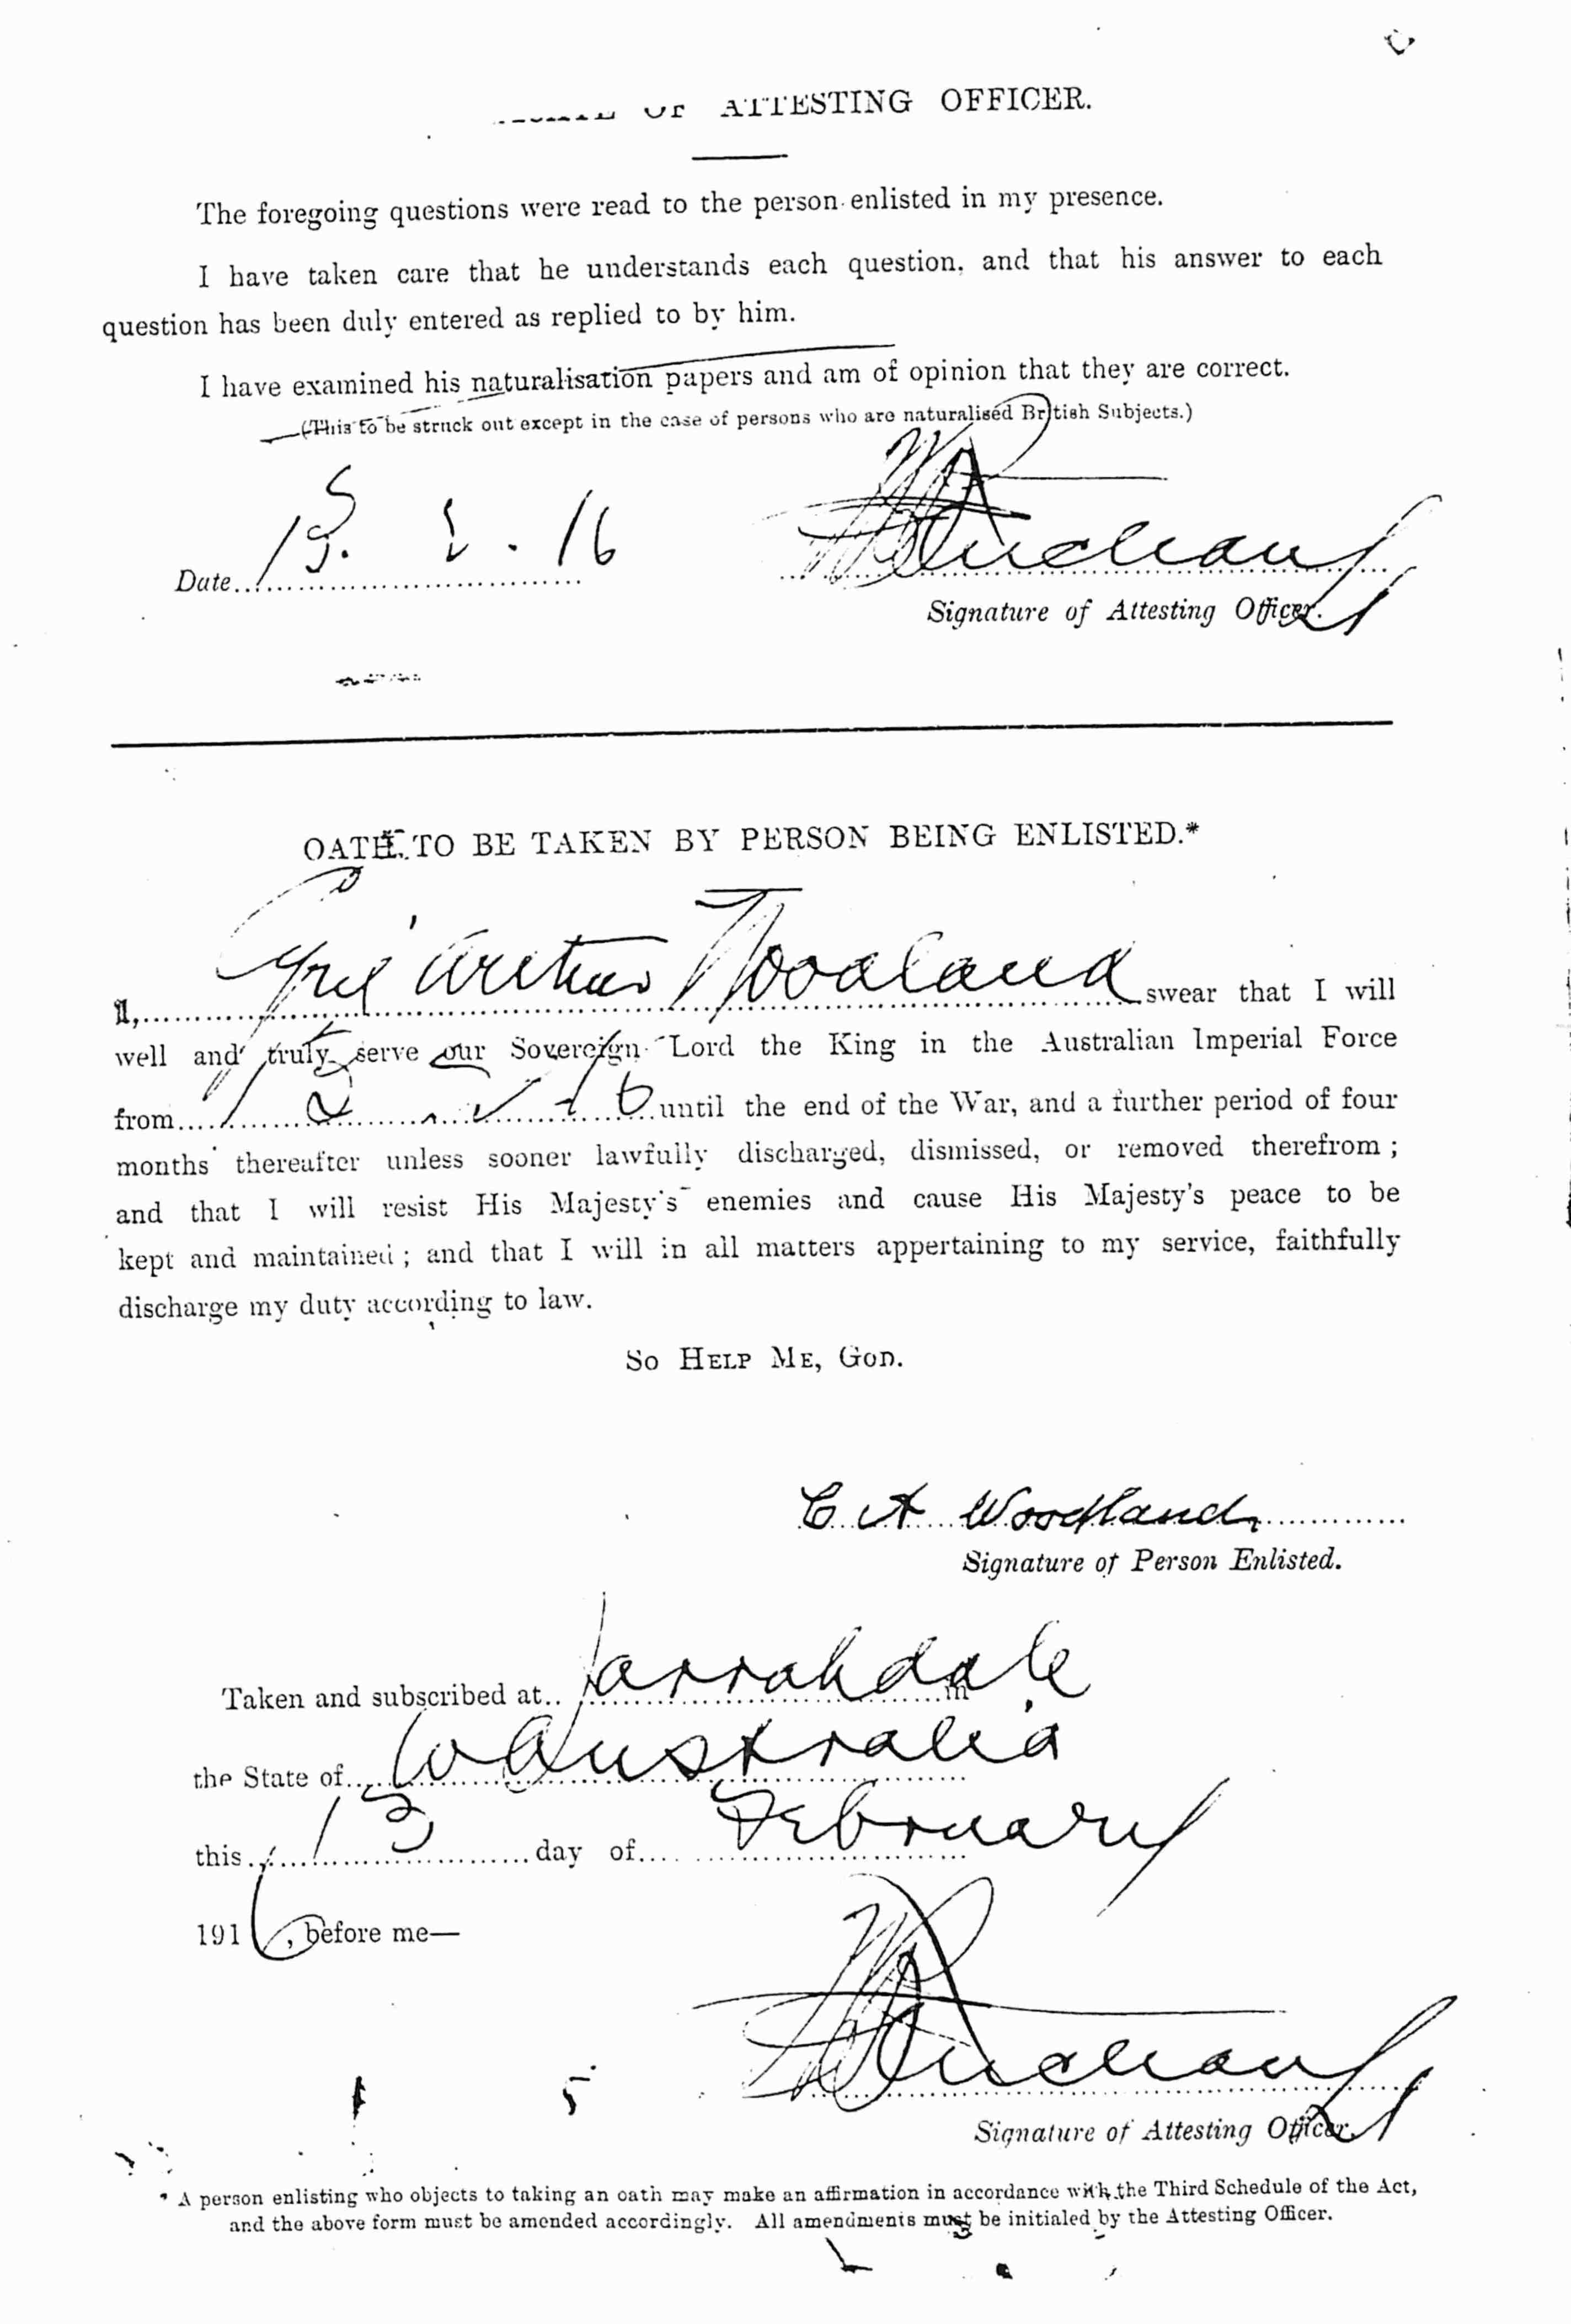 OF ATTESTING OFFICER.
The foregoing questions were read to the person enlisted in my presence.
I have taken care that he understands each question, and that his answer to each
question has been duly entered as replied to by him.
I have examined his naturalisation papers and am of opinion that they are correct.
(This to be struck out except in the case of persons who are naturalised British Subjects.)
Date 13. 2. 16
Signature of Attesting Officer.
OATH TO BE TAKEN BY PERSON BEING ENLISTED.*
I, Cyril Arthur Woodland swear that I will
well and truly serve our Sovereign Lord the King in the Australian Imperial Force
from until the end of the War, and a further period of four
months' thereafter unless sooner lawfully discharged, dismissed, or removed therefrom;
and that I will resist His Majesty's enemies and cause His Majesty's peace to be
kept and maintained; and that I will in all matters appertaining to my service, faithfully
discharge my duty according to law.
So Help Me, God.
C A Woodland
Signature of Person Enlisted.
Taken and subscribed at Jarrahdale in
the State of W Australia
this 13 day of February
1916, before me—
Signature of Attesting Officer.
* A person enlisting who objects to taking an oath may make an affirmation in accordance with the Third Schedule of the Act,
and the above form must be amended accordingly. All amendments must be initialed by the Attesting Officer.